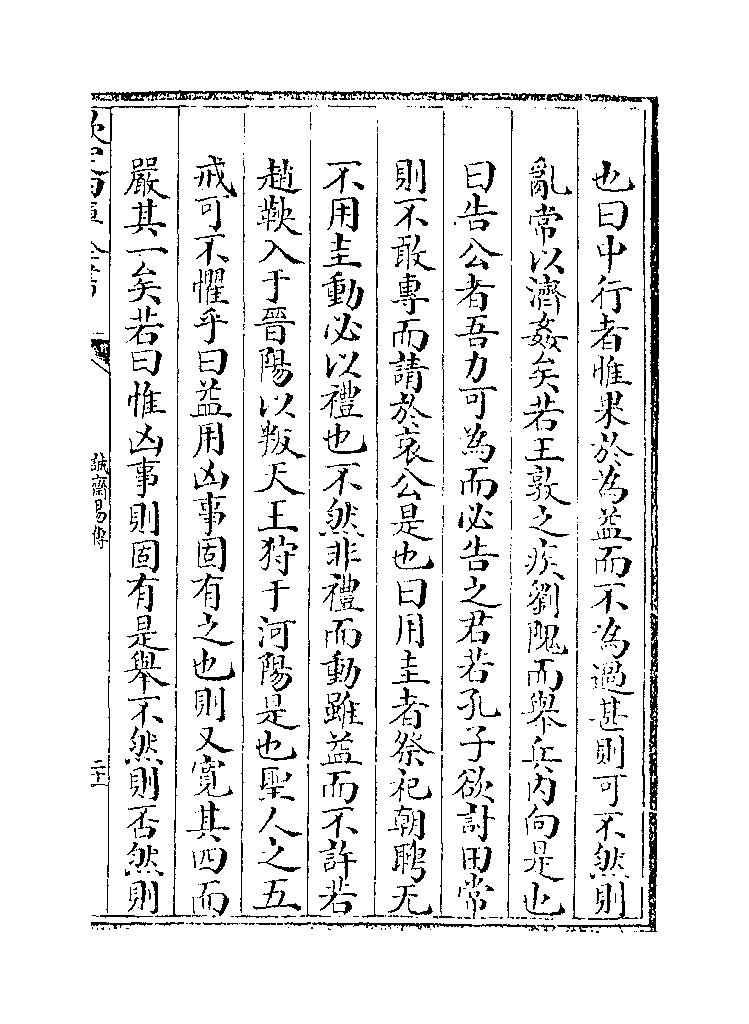 也曰中行者惟果於為益而不為過甚則可不然則
亂常以濟姦矣若王敦之疾劉隗而舉兵内向是也
曰告公者吾力可為而必告之君若孔子欲討田常
則不敢專而請於哀公是也曰用圭者祭祀朝聘无
不用圭動必以禮也不然非禮而動雖益而不許若
趙鞅入于晉陽以叛天王狩于河陽是也聖人之五
戒可不懼乎曰益用凶事固有之也則又寛其四而
嚴其一矣若曰惟凶事則固有是舉不然則否然則
誠齋易傳